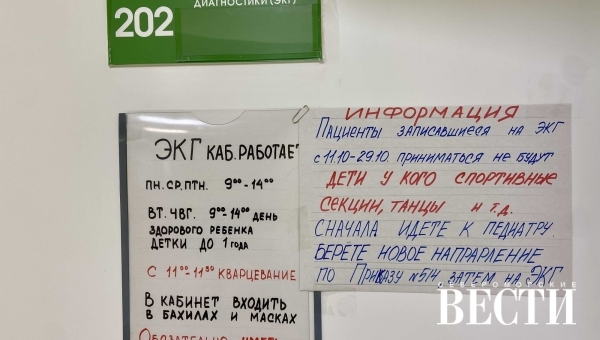 202
ДИАГНОСТИКИ (ЭКГ)
ЭКГ КАБ. РАБОТАЕТ
ПН. СР. ПТН. 9⁰⁰-14⁰⁰
ВТ. ЧВГ. 9⁰⁰-14⁰⁰ ДЕНЬ
ЗДОРОВОГО РЕБЕНКА
ДЕТКИ ДО 1 ГОДА
С 11⁰⁰-11³⁰ КВАРЦЕВАНИЕ
В КАБИНЕТ ВХОДИТЬ
В БАХИЛАХ И МАСКАХ
ОБЯЗАТЕЛЬНО ИМЕТЬ
ИНФОРМАЦИЯ
ПАЦИЕНТЫ ЗАПИСАВШИЕСЯ НА ЭКГ
С 11.10-29.10. ПРИНИМАТЬСЯ НЕ БУДУТ
ДЕТИ У КОГО СПОРТИВНЫЕ
СЕКЦИИ, ТАНЦЫ И Т.Д.
СНАЧАЛА ИДЕТЕ К ПЕДИАТРУ.
БЕРЁТЕ НОВОЕ НАПРАРЛЕНИЕ
ПО ПРИКАЗУ №514 ЗАТЕМ НА ЭКГ
СЕВЕРОМОРСКИЕ
ВЕСТИ